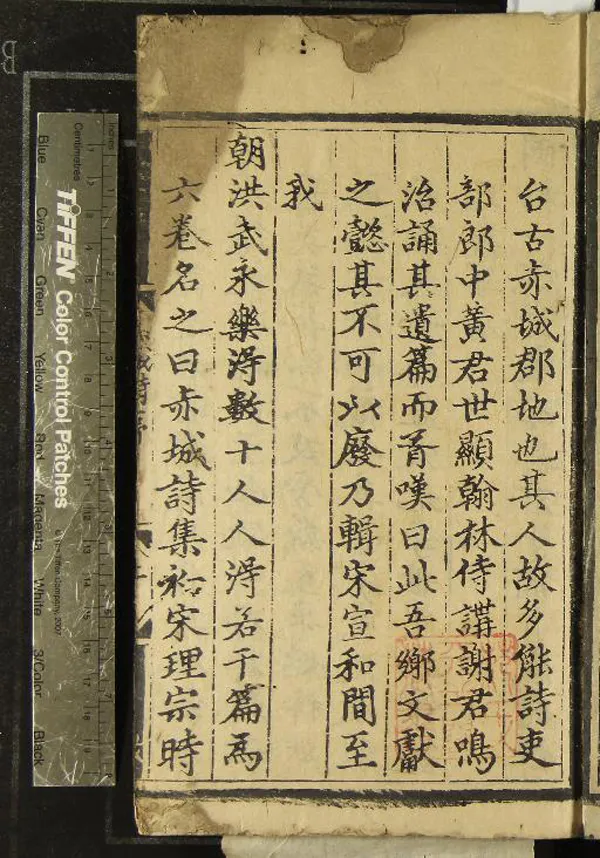 台古赤城郡地也其人故多能詩吏
部郎中黃君世顯翰林侍講謝君鳴
治誦其遺篇而胥嘆曰此吾鄉文獻
之懿其不可以廢乃輯宋宣和間至
我
朝洪武永樂淂數十人人淂若干篇爲
六卷名之曰赤城詩集葢宋理宗時
inches
Centimetres
TIFFEN Color Control Patches
© The Tiffen Company, 2007
Blue
Cyan
Green
Yellow
Red
Magenta
White
3/Color
Black
B